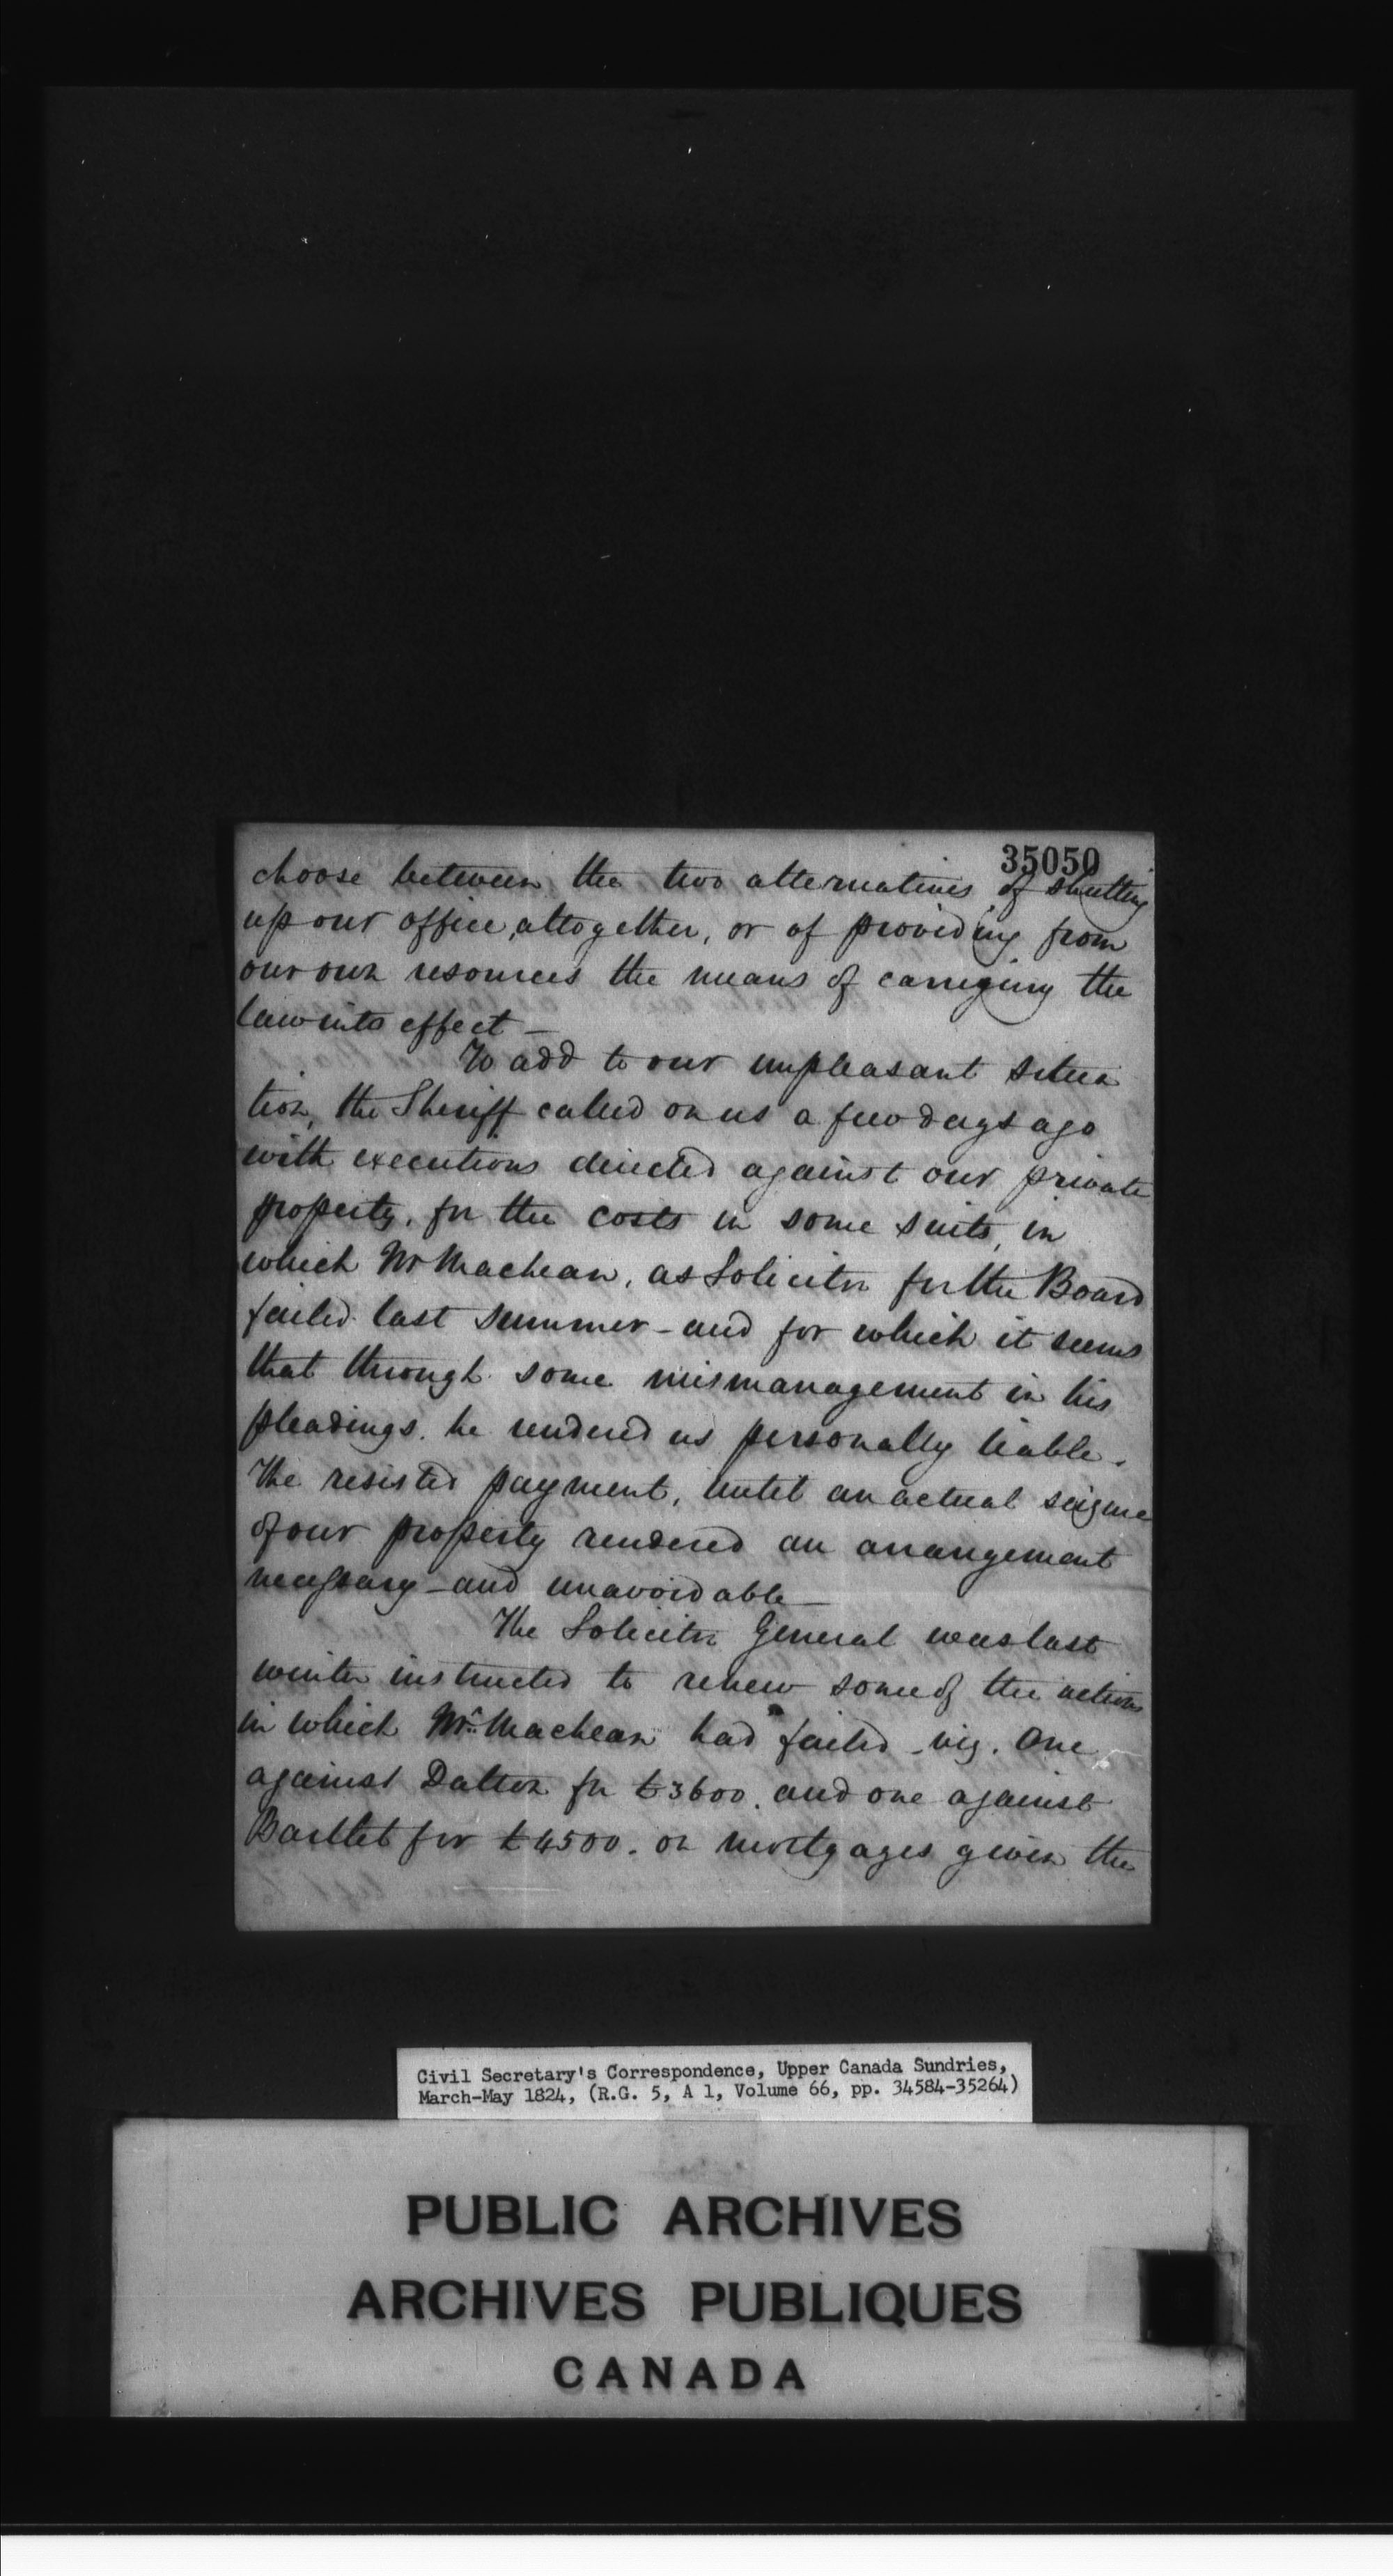 35050
choose between the two alternatives of shutting
up our office altogether, or of providing from
our own resources the means of carrying the
law into effect —
To add to our unpleasant situa
tion, the Sheriff called on us a few days ago
with executions directed against our private
property, for the costs in some suits, in
which Mr Maclean, as Solicitor for the Board
failed last summer - and for which it seems
that through some mismanagement in his
pleadings. he rendered us personally liable.
We resisted payment, until an actual seizure
of our property rendered an arrangement
necessary - and unavoidable —
The Solicitor General was last
winter instructed to renew some of the actions
in which Mr. Maclean had failed - viz. One
against Dalton for £3600. and one against
Bartlet for £4500. on mortgages given the
Civil Secretary's Correspondence, Upper Canada Sundries,
March-May 1824, (R.G. 5, A 1, Volume 66, pp. 34584-35264)
PUBLIC ARCHIVES
ARCHIVES PUBLIQUES
CANADA